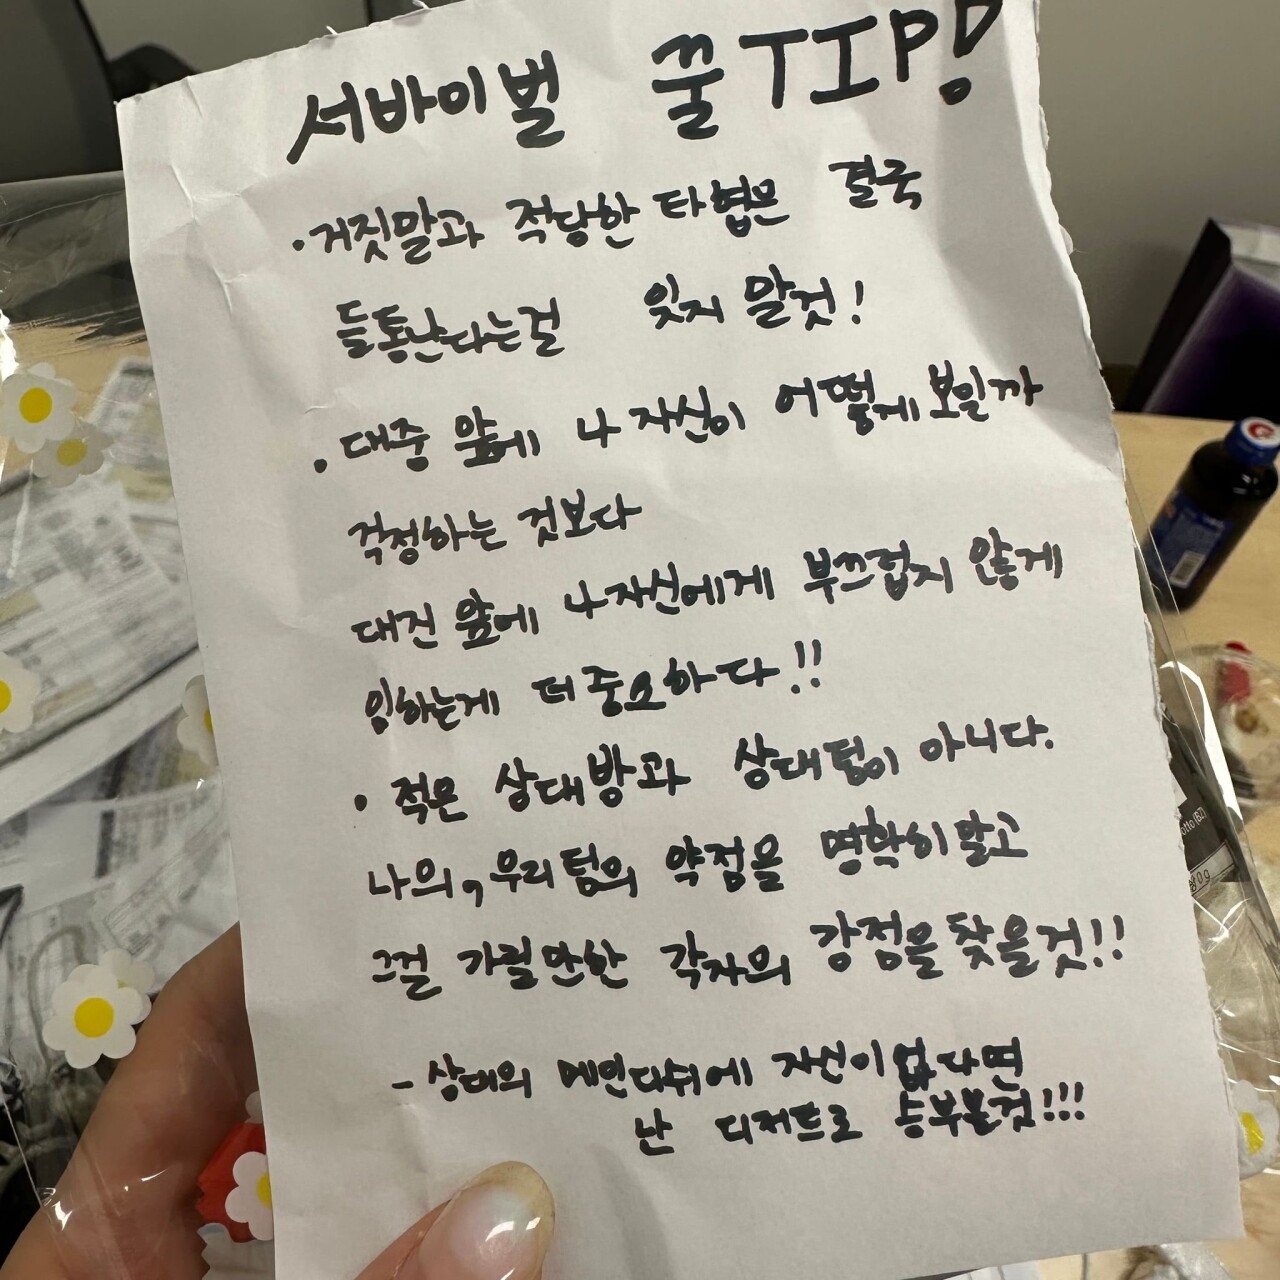 서바이벌 꿀TIP!
· 거짓말과 적당한 타협은 결국
들통난다는걸 잊지 말것!
· 대중 앞에 나 자신이 어떻게 보일까
걱정하는 것보다
대진 앞에 나 자신에게 부끄럽지 않게
임하는게 더 중요하다!!
· 적은 상대방과 상대팀이 아니다.
나의, 우리팀의 약점을 명확히 알고
그걸 가릴만한 각자의 강점을 찾을것!!
- 상대의 메인디쉬에 자신이 없다면
난 디저트로 승부볼것!!!
otto (BZ)